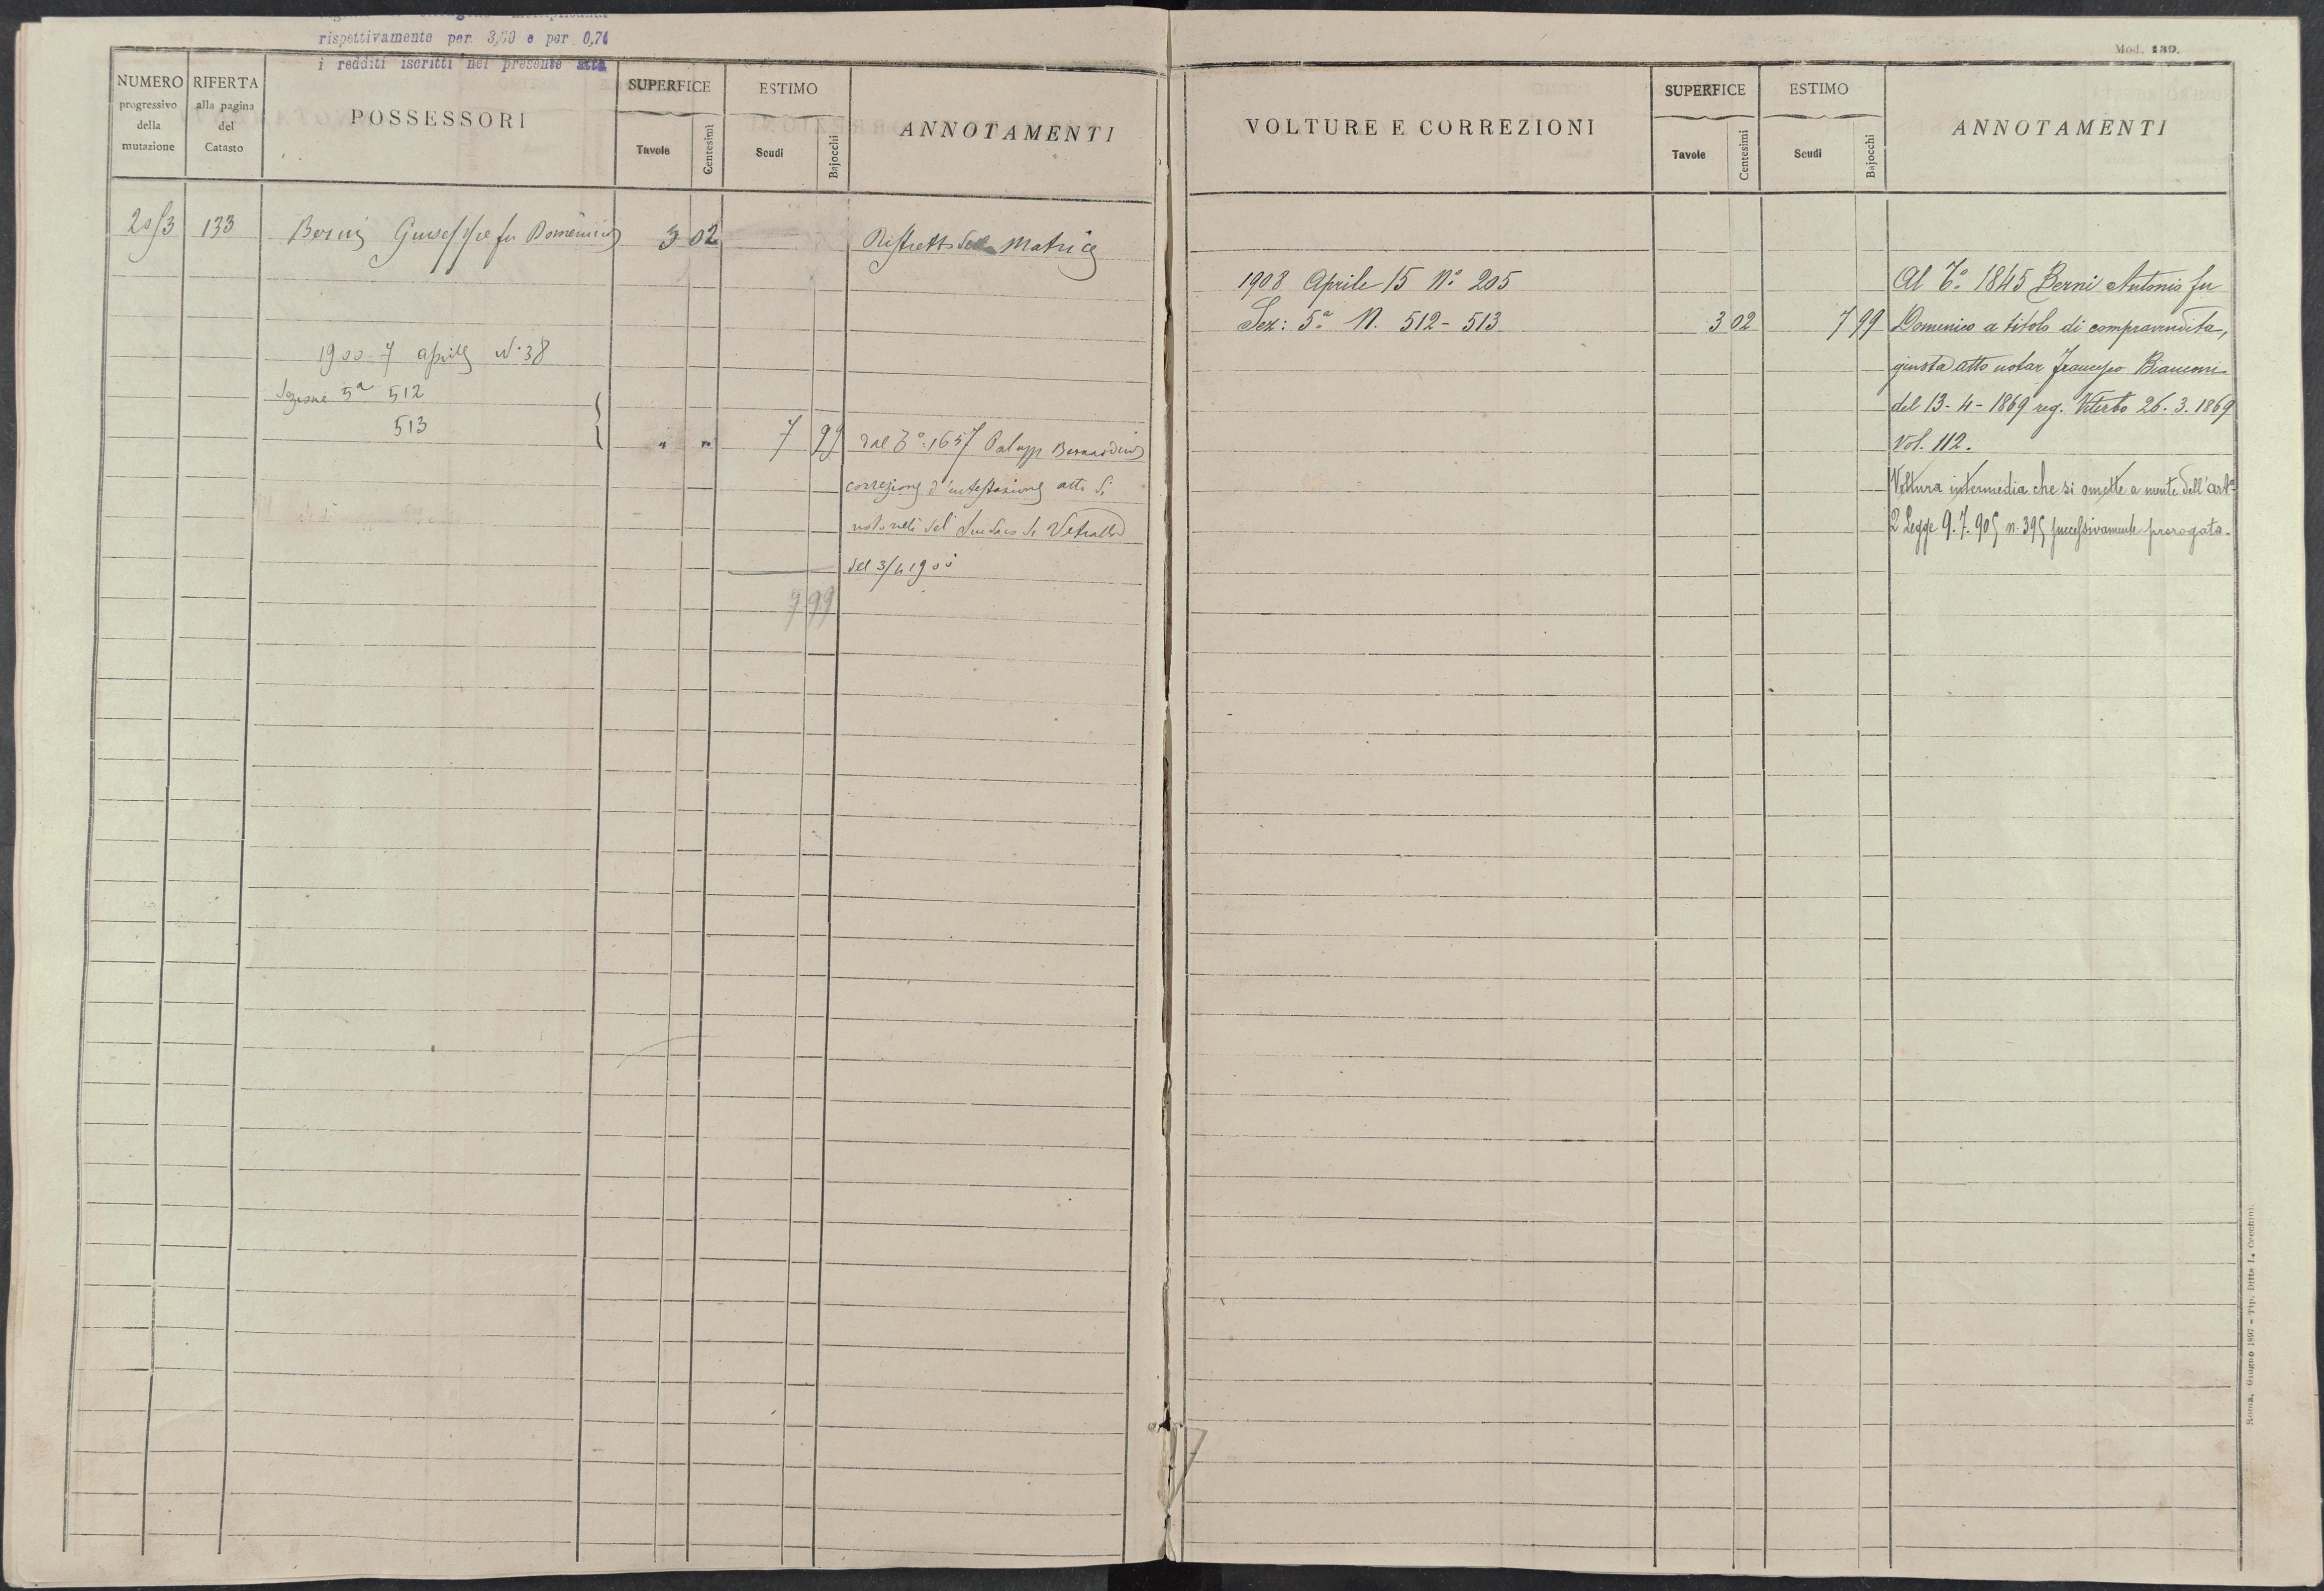 rispettivamente per 3,60 e per 0,70
i redditi iscritti nel presente atto
NUMERO
progressivo
della
mutazione
RIFERTA
alla pagina
del
Catasto
POSSESSORI
SUPERFICE
Tavole
Centesimi
ESTIMO
Scudi
Bajocchi
ANNOTAMENTI
133
Berni Giuseppe fu Domenico
3 02
Ristretto della Matrice
1900 7 aprile N° 38
Sezione 5a 512
513
" "
7 99
dal T° 1657 Paluzzi Bernardino
correzione d'intestazione atto di
notorietà del Sindaco di Vetralla
del 3/4 1900
7 99
Mod. 139.
VOLTURE E CORREZIONI
SUPERFICE
Tavole
Centesimi
ESTIMO
Scudi
Bajocchi
ANNOTAMENTI
1908 Aprile 15 N° 205
Sez: 5a N. 512 - 513
3 02
7 99
Al T° 1845 Berni Antonio fu
Domenico a titolo di compravendita,
giusta atto notar Francesco Bianconi
del 13-4-1869 reg. Viterbo 26.3.1869
Vol. 112.
Voltura intermedia che si omette a mente dell'art°
2 Legge 9.7.905 n. 395 successivamente prorogata.
Roma, Giugno 1897 - Tip. Ditta L. Cecchini.